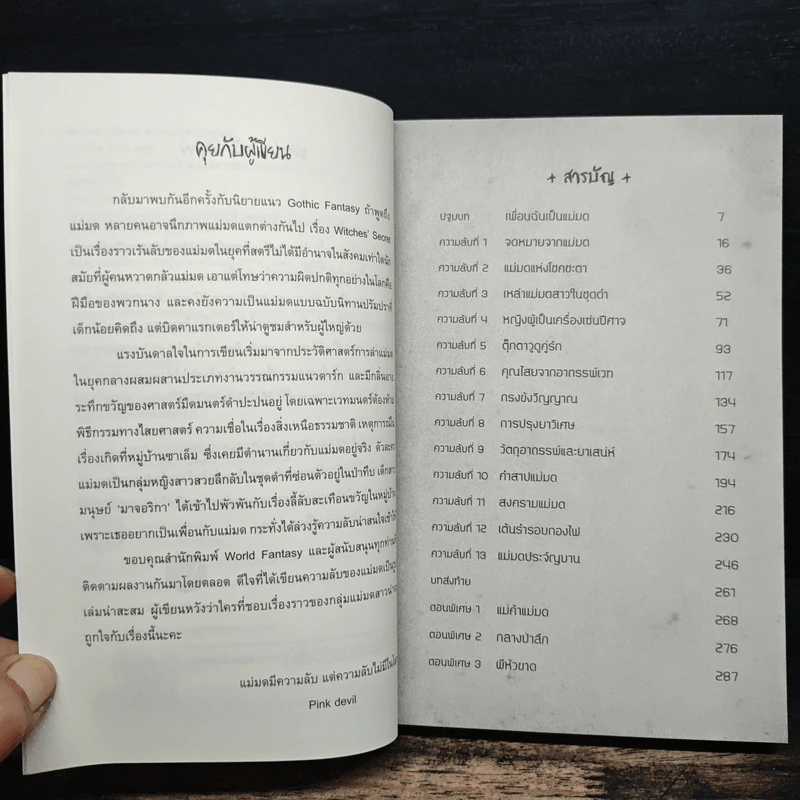 คุยกับผู้เขียน
กลับมาพบกันอีกครั้งกับนิยายแนว Gothic Fantasy ถ้าพูดถึง
แม่มด หลายคนอาจนึกภาพแม่มดแตกต่างกันไป เรื่อง Witches' Secret
เป็นเรื่องราวเร้นลับของแม่มดในยุคที่สตรีไม่ได้มีอำนาจในสังคมเท่าใดนัก
สมัยที่ผู้คนหวาดกลัวแม่มด เอาแต่โทษว่าความผิดปกติทุกอย่างในโลกคือ
ฝีมือของพวกนาง และคงยังความเป็นแม่มดแบบฉบับนิทานปรัมปราที่
เด็กน้อยคิดถึง แต่บิดคาแรกเตอร์ให้น่าดูชมสำหรับผู้ใหญ่ด้วย
แรงบันดาลใจในการเขียนเริ่มมาจากประวัติศาสตร์การล่าแม่มด
ในยุคกลางผสมผสานประเภทงานวรรณกรรมแนวดาร์ก และมีกลิ่นอาย
ระทึกขวัญของศาสตร์มืดมนตร์ดำปะปนอยู่ โดยเฉพาะเวทมนตร์ต้องห้าม
พิธีกรรมทางไสยศาสตร์ ความเชื่อในเรื่องสิ่งเหนือธรรมชาติ เหตุการณ์ใน
เรื่องเกิดที่หมู่บ้านซาเล็ม ซึ่งเคยมีตำนานเกี่ยวกับแม่มดอยู่จริง ตัวละคร
แม่มดเป็นกลุ่มหญิงสาวสวยลึกลับในชุดดำที่ซ่อนตัวอยู่ในป่าทึบ เด็กสาว
มนุษย์ 'มาจอริกา' ได้เข้าไปพัวพันกับเรื่องลี้ลับสะเทือนขวัญในหมู่บ้าน
เพราะเธออยากเป็นเพื่อนกับแม่มด กระทั่งได้ล่วงรู้ความลับน่าสนใจเข้า
ขอบคุณสำนักพิมพ์ World Fantasy และผู้สนับสนุนทุกท่านที่
ติดตามผลงานกันมาโดยตลอด ดีใจที่ได้เขียนความลับของแม่มดเป็นรูป
เล่มน่าสะสม ผู้เขียนหวังว่าใครที่ชอบเรื่องราวของกลุ่มแม่มดสาวน่าจะ
ถูกใจกับเรื่องนี้นะคะ
แม่มดมีความลับ แต่ความลับไม่มีในโลก
Pink devil
+ สารบัญ +
ปฐมบท เพื่อนฉันเป็นแม่มด 7
ความลับที่ 1 จดหมายจากแม่มด 16
ความลับที่ 2 แม่มดแห่งโชคชะตา 36
ความลับที่ 3 เหล่าแม่มดสาวในชุดดำ 52
ความลับที่ 4 หญิงผู้เป็นเครื่องเซ่นปีศาจ 71
ความลับที่ 5 ตุ๊กตาวูดูคู่รัก 93
ความลับที่ 6 คุณไสยจากอาถรรพ์เวท 117
ความลับที่ 7 กรงขังวิญญาณ 134
ความลับที่ 8 การปรุงยาวิเศษ 157
ความลับที่ 9 วัตถุอาถรรพ์และยาเสน่ห์ 174
ความลับที่ 10 คำสาปแม่มด 194
ความลับที่ 11 สงครามแม่มด 216
ความลับที่ 12 เต้นรำรอบกองไฟ 230
ความลับที่ 13 แม่มดประจัญบาน 246
บทส่งท้าย 261
ตอนพิเศษ 1 แม่ค้าแม่มด 268
ตอนพิเศษ 2 กลางป่าลึก 276
ตอนพิเศษ 3 ผีหัวขาด 287